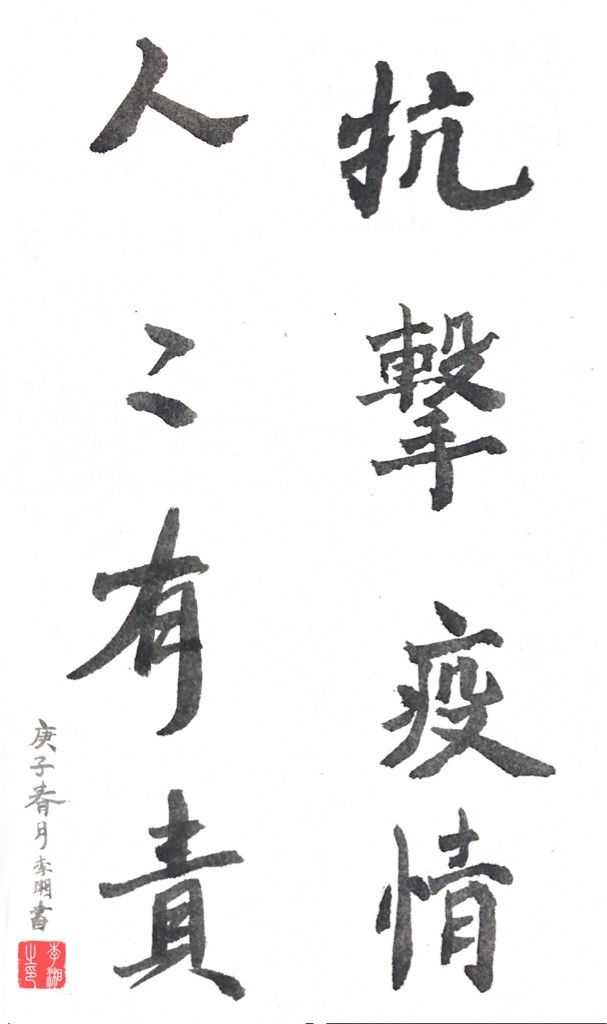 抗擊疫情
人〻有責
庚子春月李湘書
李湘
之印